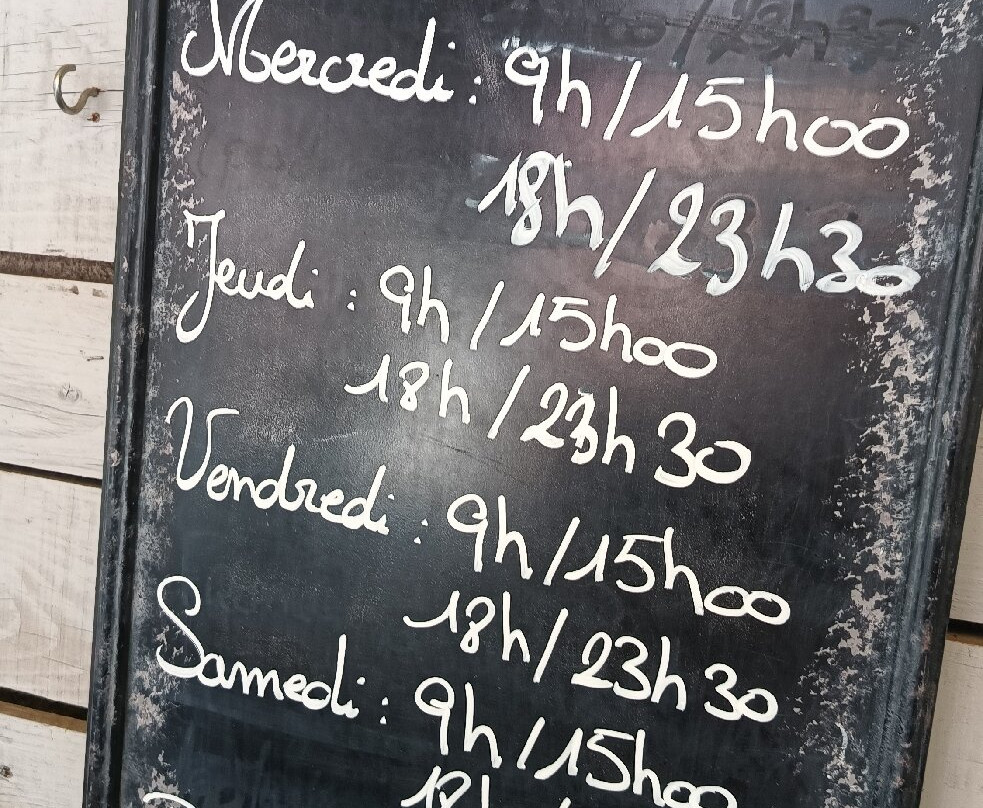 Mercredi : 9h/15h00
18h/23h30
Jeudi : 9h/15h00
18h/23h30
Vendredi : 9h/15h00
18h/23h30
Samedi : 9h/15h00
18h/